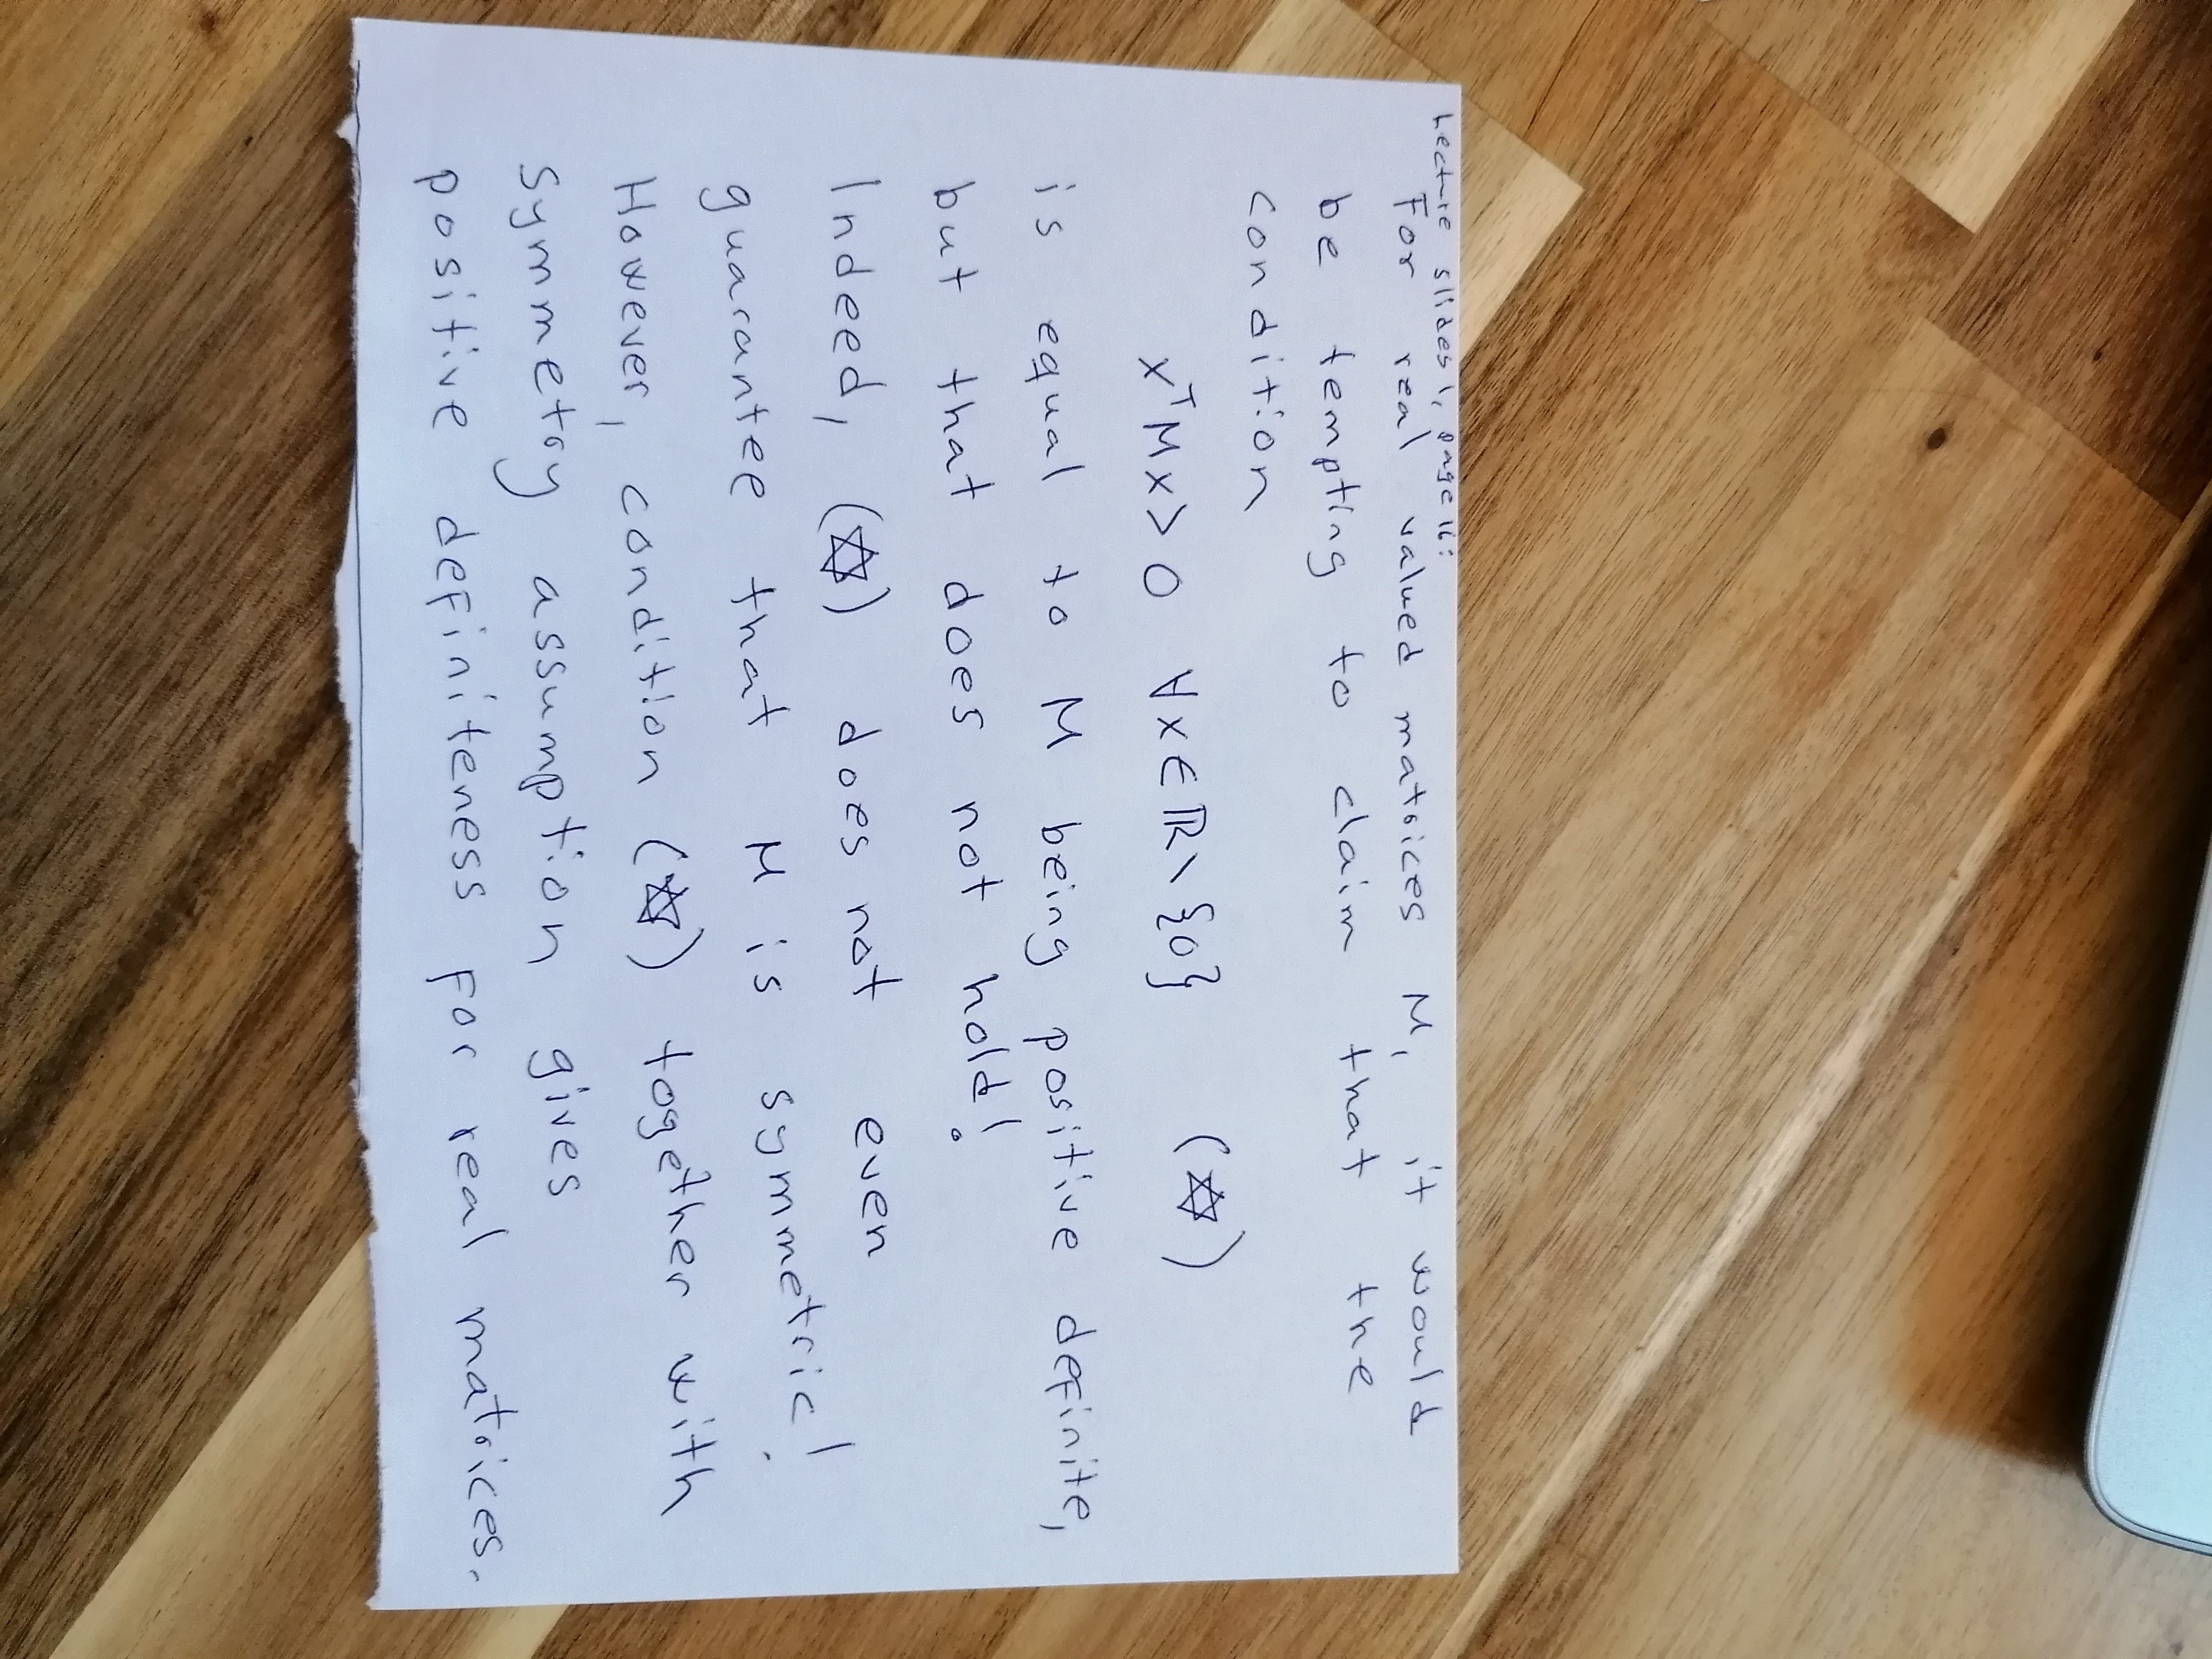 Lecture slides 1, page 16:
For real valued matrices M, it would
be tempting to claim that the
condition
xᵀMx > 0 ∀x∈ℝ\{0} (✡)
is equal to M being positive definite,
but that does not hold!
Indeed, (✡) does not even
guarantee that M is symmetric!
However, condition (✡) together with
symmetry assumption gives
positive definiteness for real matrices.